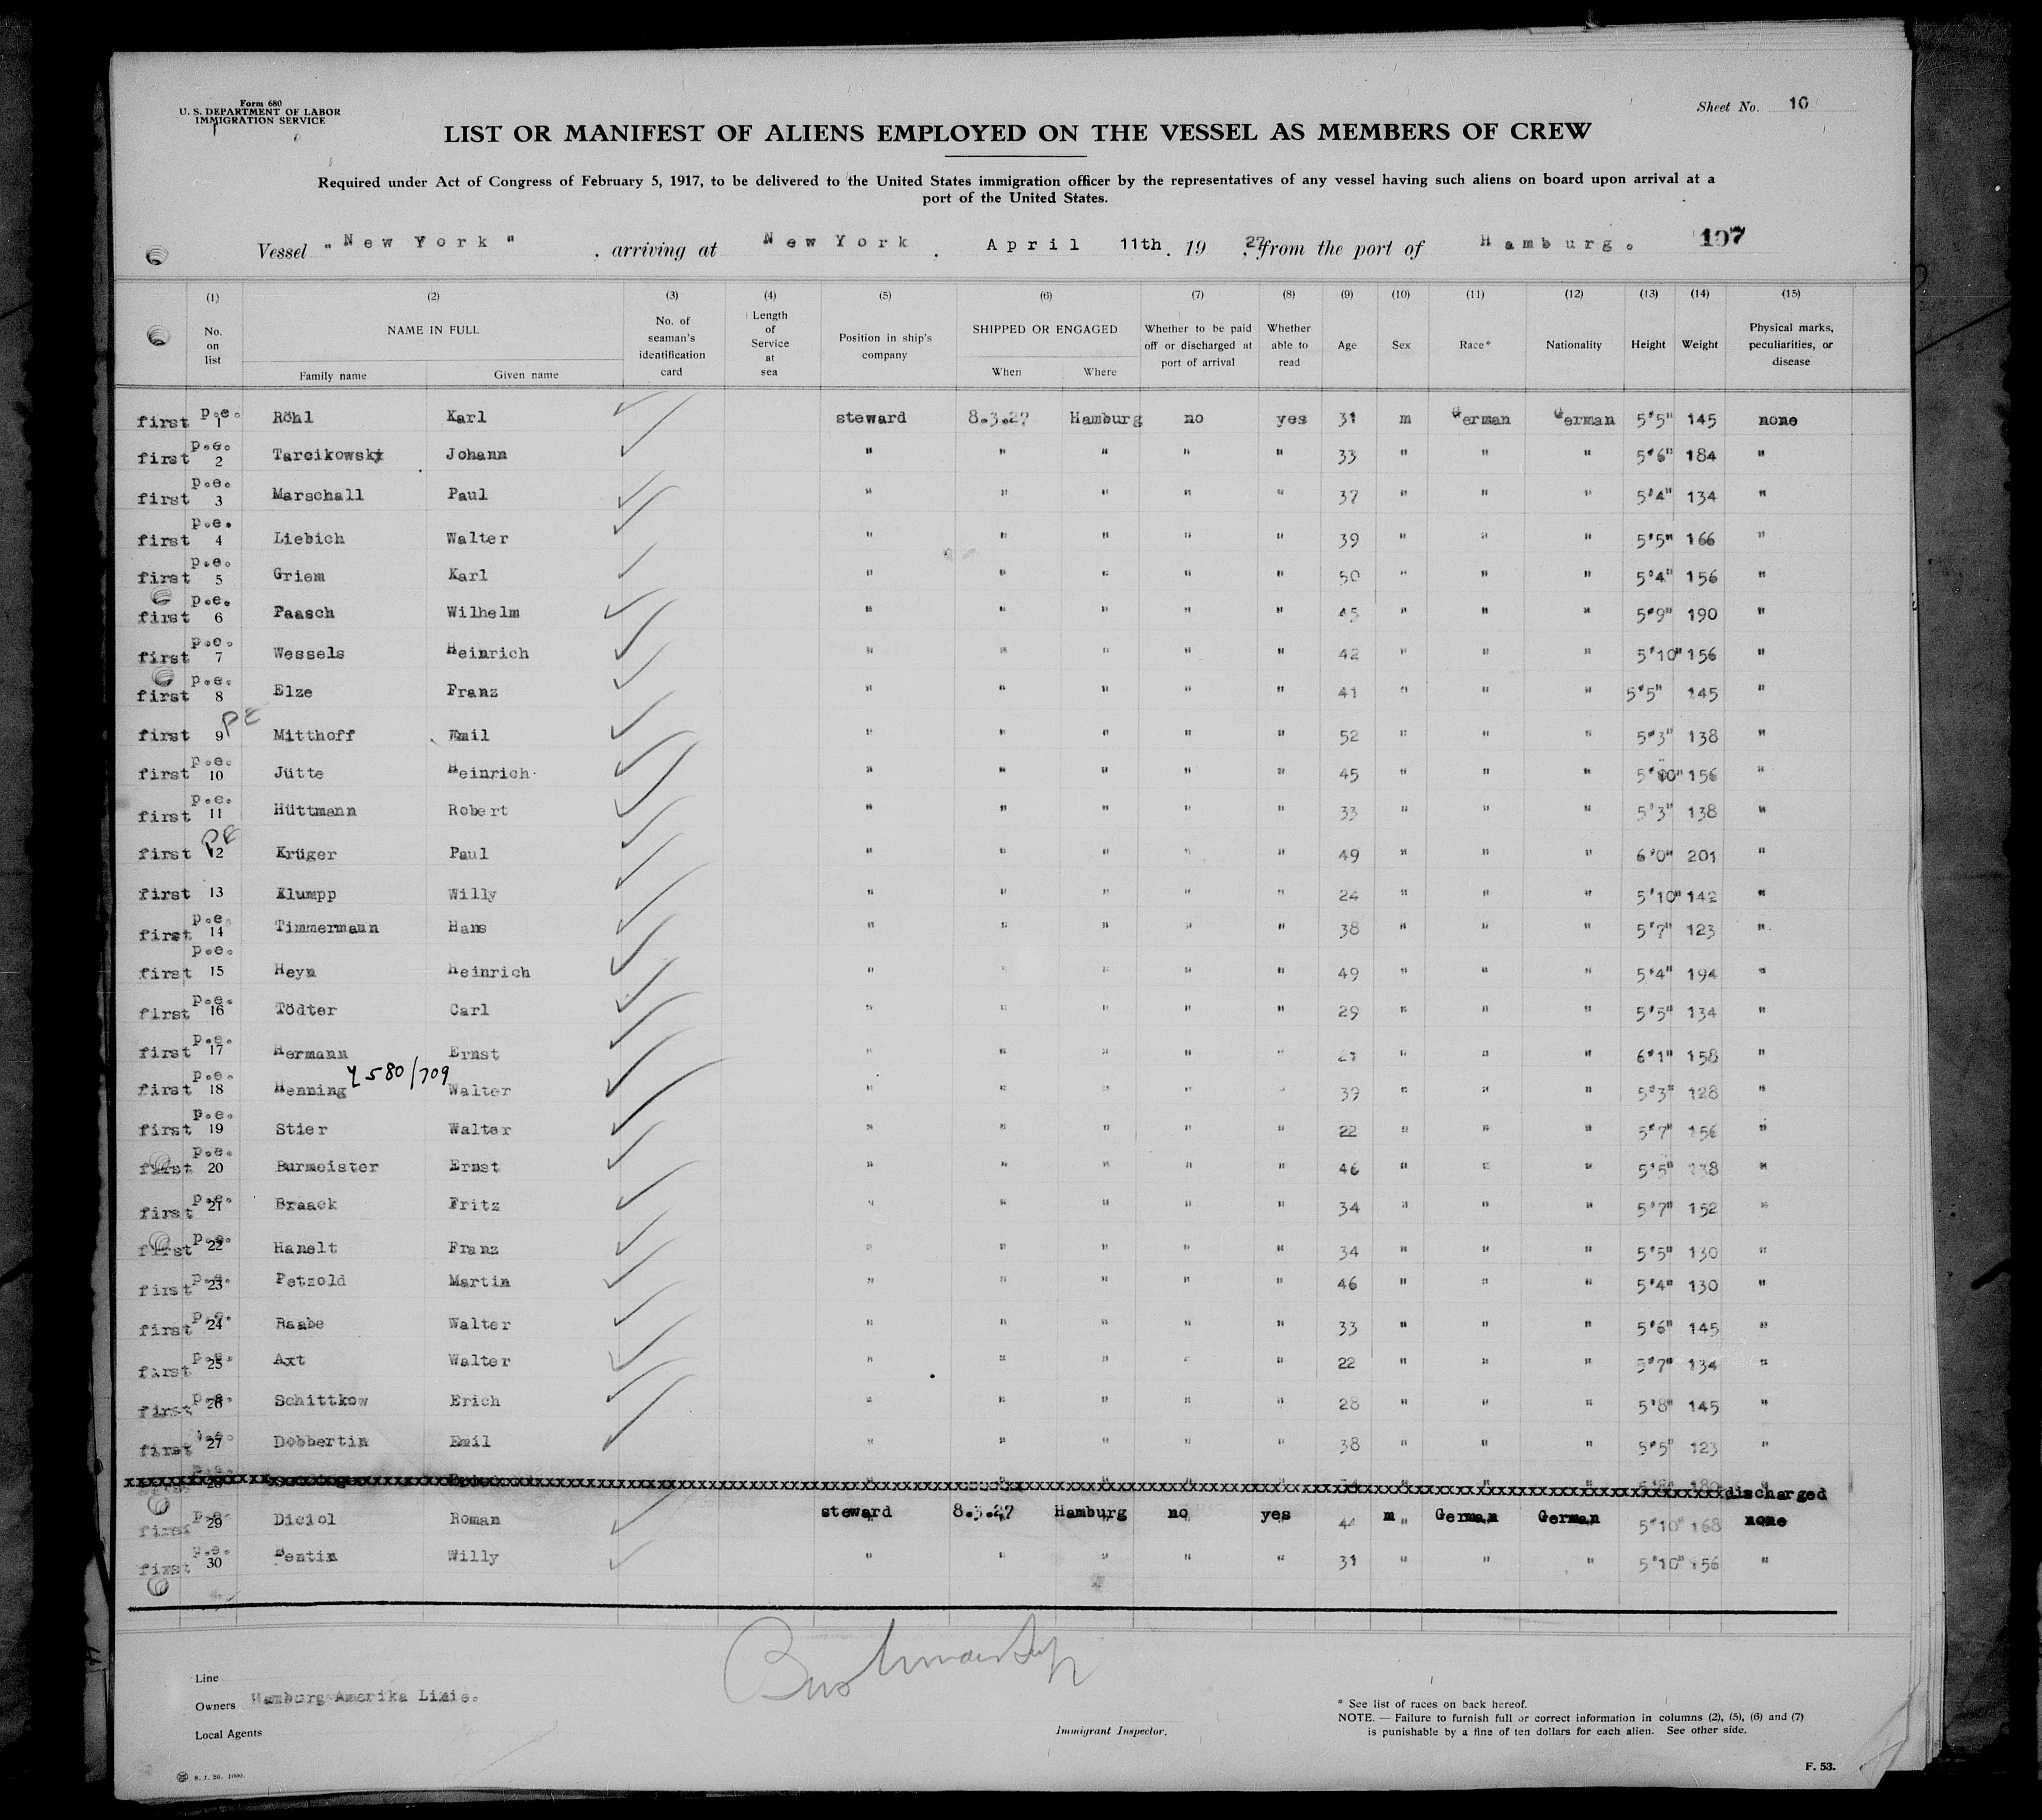 Form 680
U. S. DEPARTMENT OF LABOR
IMMIGRATION SERVICE
Sheet No. 10
LIST OR MANIFEST OF ALIENS EMPLOYED ON THE VESSEL AS MEMBERS OF CREW
Required under Act of Congress of February 5, 1917, to be delivered to the United States immigration officer by the representatives of any vessel having such aliens on board upon arrival at a
port of the United States.
Vessel "New York" . arriving at New York . April 11th . 19 27 , from the port of Hamburg. 107
(1) (2) (3) (4) (5) (6) (7) (8) (9) (10) (11) (12) (13) (14) (15)
No. on list NAME IN FULL Family name Given name No. of seaman's identification card Length of Service at sea Position in ship's company SHIPPED OR ENGAGED When Where Whether to be paid off or discharged at port of arrival Whether able to read Age Sex Race* Nationality Height Weight Physical marks, peculiarities, or disease
first p.e. 1 Röhl Karl steward 8.3.27 Hamburg no yes 31 m German German 5'5" 145 none
first p.e. 2 Tarcikowski Johann " " " " " 33 " " " 5'6" 184 "
first p.e. 3 Marschall Paul " " " " " 37 " " " 5'4" 134 "
first p.e. 4 Liebich Walter " " " " " 39 " " " 5'5" 166 "
first p.e. 5 Griem Karl " " " " " 50 " " " 5'4" 156 "
first p.e. 6 Paasch Wilhelm " " " " " 45 " " " 5'9" 190 "
first p.e. 7 Wessels Heinrich " " " " " 42 " " " 5'10" 156 "
first p.e. 8 Elze Franz " " " " " 41 " " " 5'5" 145 "
first PE 9 Mitthoff Emil " " " " " 52 " " " 5'3" 138 "
first p.e. 10 Jütte Heinrich " " " " " 45 " " " 156 "
first p.e. 11 Hüttmann Robert " " " " " 33 " " " 5'3" 138 "
first PE 12 Krüger Paul " " " " " 49 " " " 6'0" 201 "
first 13 Klumpp Willy " " " " " 24 " " " 5'10" 142 "
first p.e. 14 Timmermann Hans " " " " " 38 " " " 5'7" 123 "
first p.e. 15 Heyn Heinrich " " " " " 49 " " " 5'4" 194 "
first p.e. 16 Tödter Carl " " " " " 29 " " " 5'5" 134 "
first p.e. 17 Hermann Ernst " " " " " " " " 6'1" 158 "
first p.e. 18 Henning 580/709 Walter " " " " " 39 " " " 5'3" 128 "
first p.e. 19 Stier Walter " " " " " 22 " " " 5'7" 156 "
first p.e. 20 Burmeister Ernst " " " " " 46 " " " 5'5" 138 "
first p.e. 21 Braack Fritz " " " " " 34 " " " 5'7" 152 "
first p.e. 22 Hanelt Franz " " " " " 34 " " " 5'5" 130 "
first p.e. 23 Petzold Martin " " " " " 46 " " " 5'4" 130 "
first p.e. 24 Raabe Walter " " " " " 33 " " " 5'6" 145 "
first p.e. 25 Axt Walter " " " " " 22 " " " 5'7" 134 "
first p.e. 26 Schittkow Erich " " " " " 28 " " " 5'8" 145 "
first p.e. 27 Dobbertin Emil " " " " " 38 " " " 5'5" 123 "
discharged
first p.e. 29 Diciol Roman steward 8.3.27 Hamburg no yes 44 m German German 5'10" 168 none
first p.e. 30 Pentin Willy " " " " " 31 " " " 5'10" 156 "
Line
Owners Hamburg-Amerika Linie.
Local Agents
Immigrant Inspector.
* See list of races on back hereof.
NOTE. — Failure to furnish full or correct information in columns (2), (5), (6) and (7)
is punishable by a fine of ten dollars for each alien. See other side.
F. 53.